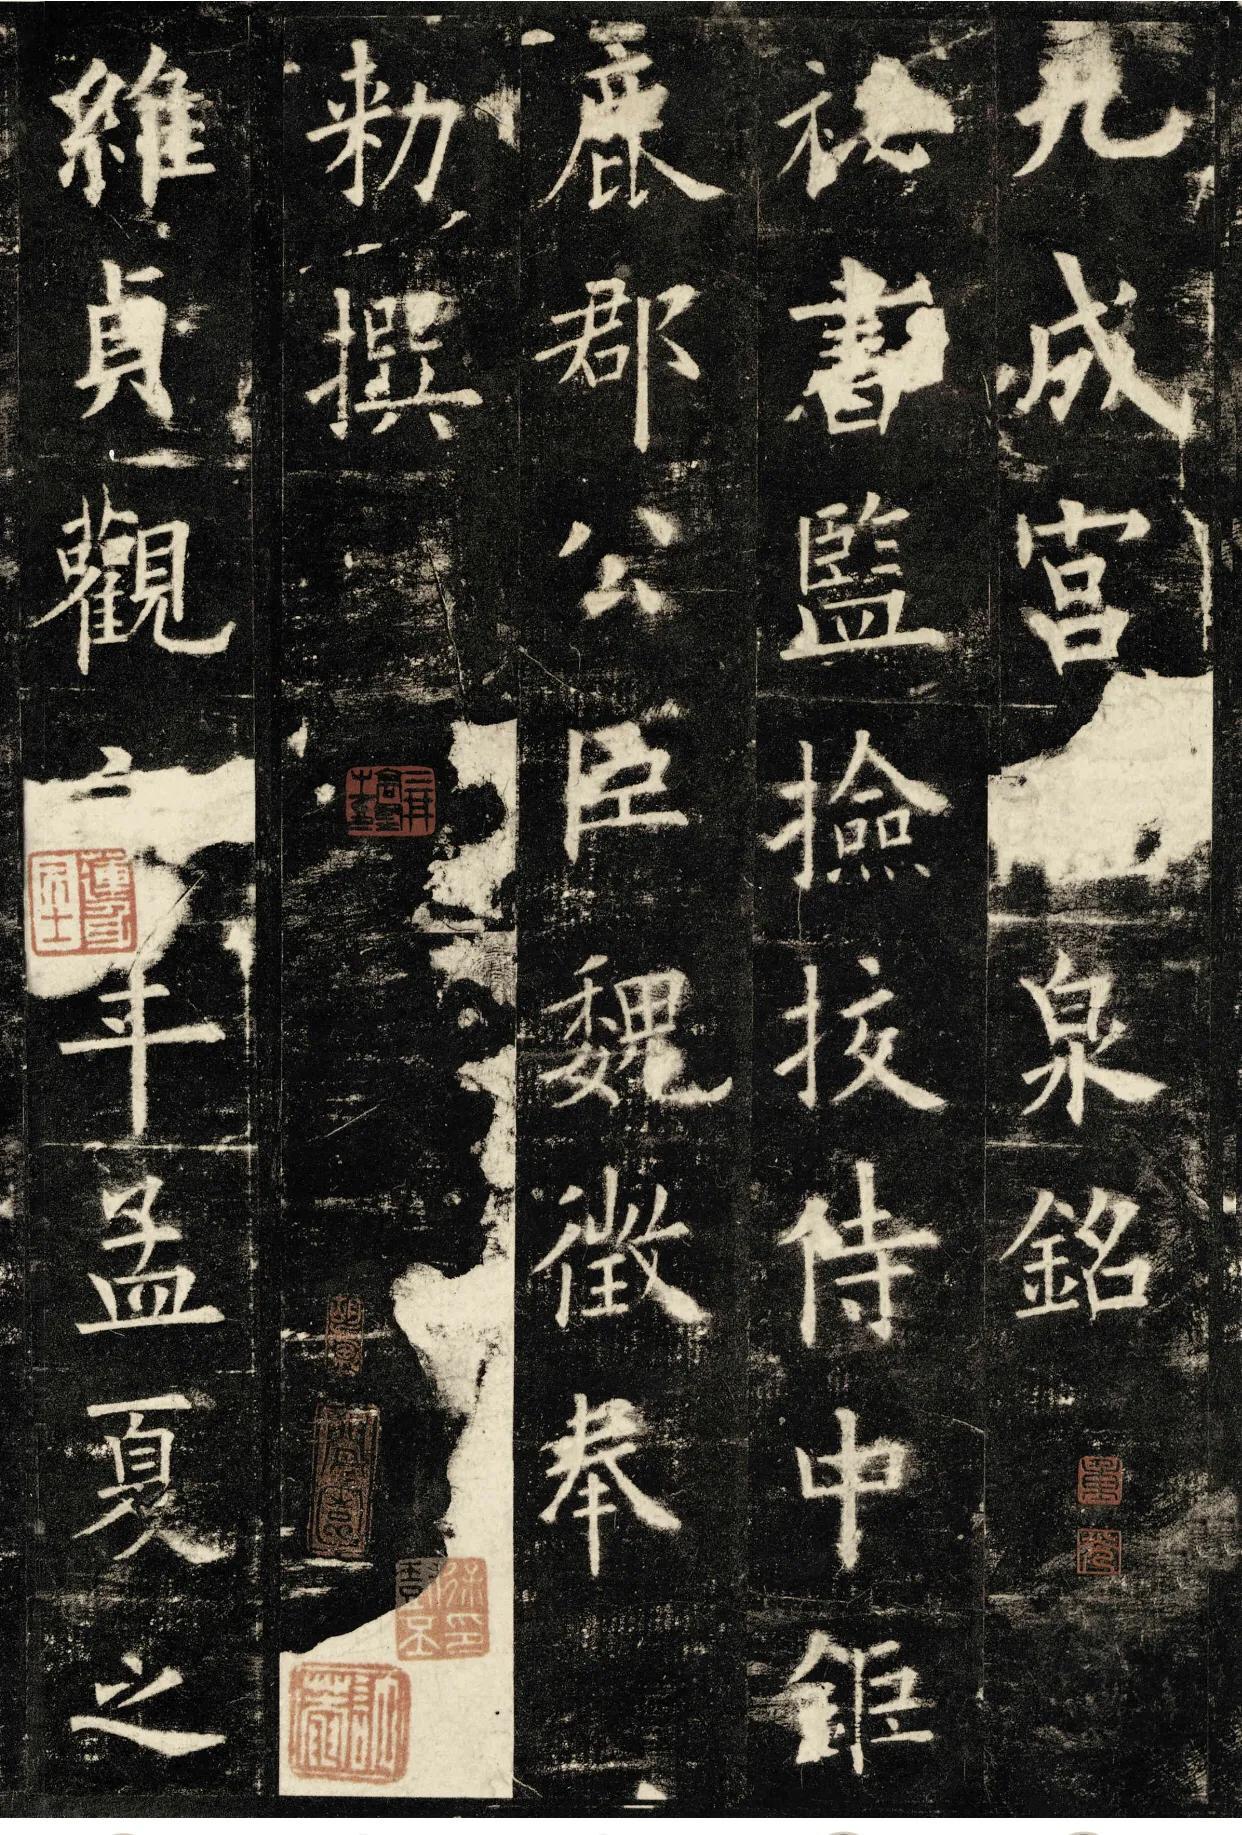 九成宮泉銘
秘書監撿挍侍中鉅
鹿郡公臣魏徵奉
勑撰
維貞觀六年孟夏之